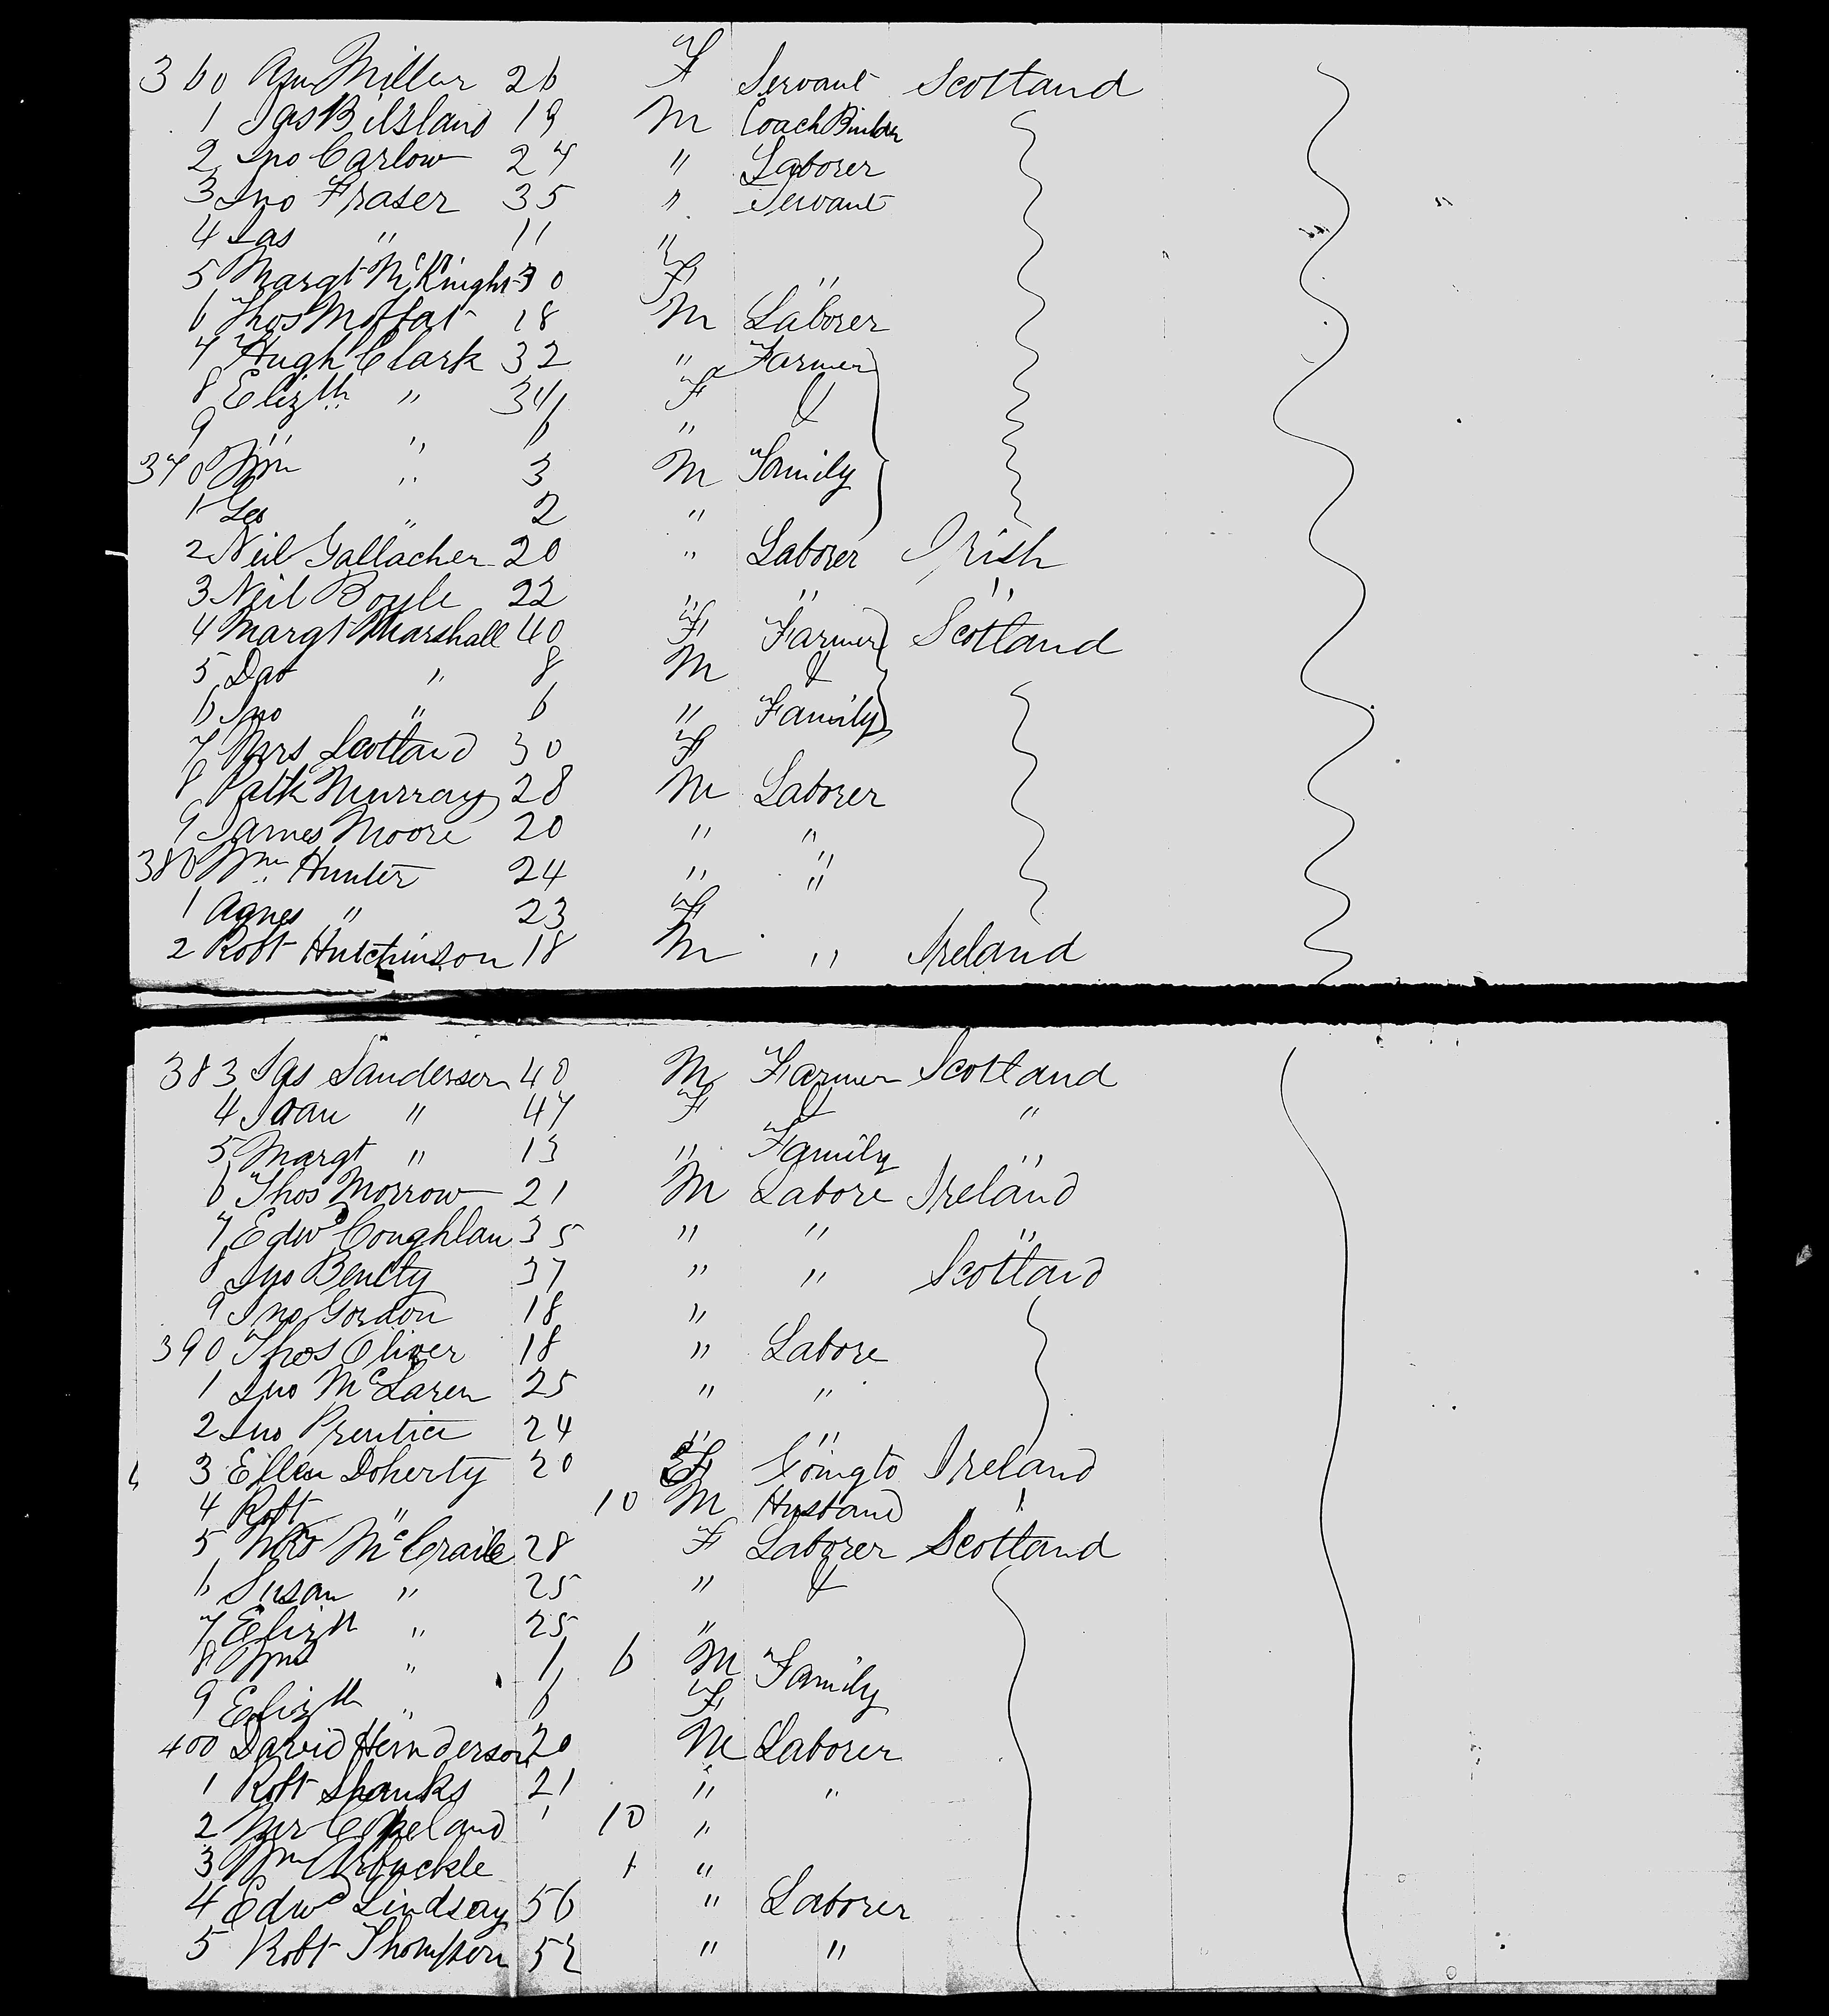 360 Ann Miller 26 F Servant Scotland
1 Jas Bilsland 19 M Coach Builder
2 Jno Carlow 24 " Laborer
3 Jno Fraser 35 " Servant
4 Jas " 11 "
5 Margt McKnight 30 F "
6 Thos Moffat 18 M Laborer
7 Hugh Clark 32 " Farmer
8 Elizth " 34 F &
9 " " 6 "
370 Wm " 3 M Family
1 Geo " 2 "
2 Neil Gallacher 20 " Laborer Irish
3 Neil Boyle 22 " " "
4 Margt Marshall 40 F Farmer Scotland
5 Dav " 8 M &
6 Jno " 6 " Family
7 Mrs Scotland 30 F
8 Patk Murray 28 M Laborer
9 James Moore 20 " "
380 Wm Hunter 24 " "
1 Agnes " 23 F "
2 Robt Hutchinson 18 M " Ireland
383 Jas Sanderson 40 M Farmer Scotland
4 Joan " 47 F & "
5 Margt " 13 " Family "
6 Thos Morrow 21 M Labore Ireland
7 Edwd Coughlan 35 " " "
8 Jno Bencty 37 " " Scotland
9 Jno Gordon 18 "
390 Thos Oliver 18 " Labore
1 Jno McLaren 25 " "
2 Jno Prentice 24 " "
3 Ellen Doherty 20 F Going to Ireland
4 Robt " 10 M Husband "
5 Mrs 28 F Laborer Scotland
6 Susan " 25 " &
7 Elizth " 25 "
8 Wm " 1 6 M Family
9 Elizth " 6 F
400 David Hernderson 20 M Laborer
1 Robt Shanks 21 " "
2 Copeland 10 "
3 Wm Arbuckle 1 "
4 Edwd Lindsay 56 " Laborer
5 Robt Thompson 52 " "